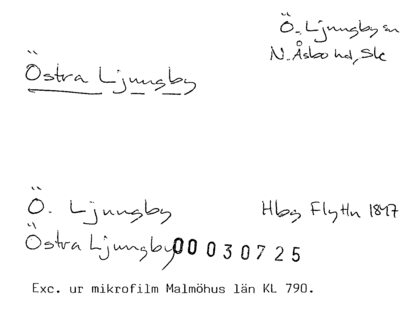 Ö. Ljungby sn
N. Åsbo hd, Sk
Östra Ljungby
Ö. Ljungby
Hbg Flyttn 1847
Östra Ljungby
00030725
Exc. ur mikrofilm Malmöhus län KL 790.